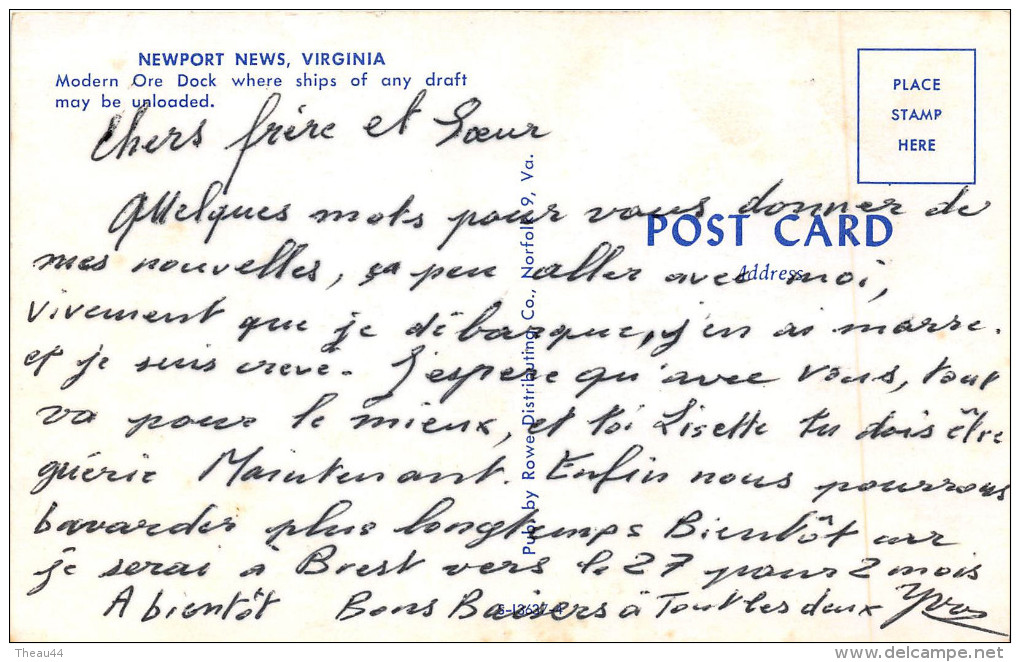 NEWPORT NEWS, VIRGINIA
Modern Ore Dock where ships of any draft
may be unloaded.
PLACE
STAMP
HERE
POST CARD
Address
Pub. by Rowe Distributing Co., Norfolk 9, Va.
S-13637-4
Chers frère et Sœur
Quelques mots pour vous donner de
mes nouvelles, ça peu aller avec moi,
vivement que je débarque, j'en ai marre.
et je suis crevé. J'espere qu'avec vous, tout
va pour le mieux, et toi Lisette tu dois être
guérie Maintenant. Enfin nous pourrons
bavarder plus longtemps Bientôt car
je serai à Brest vers le 27 pour 2 mois
A bientôt Bons Baisers à Tout les deux Yvon
Theau44
www.delcampe.net